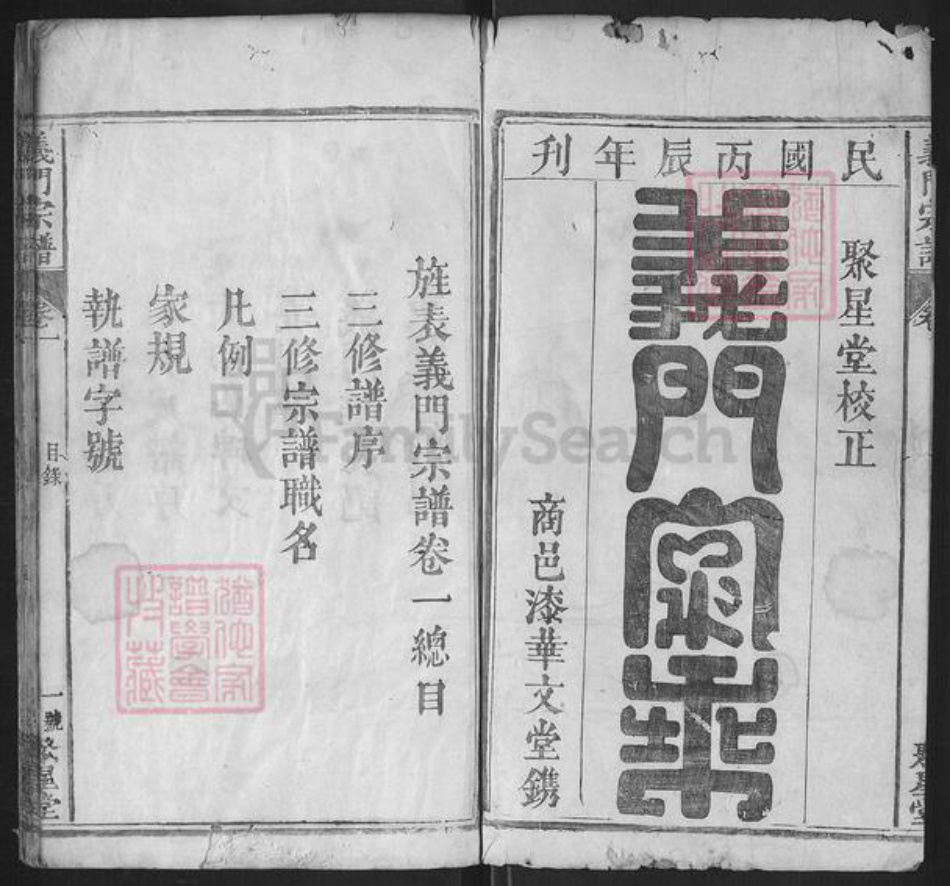 民國丙辰年刊
聚星堂校正
義門宗
商邑漆華文堂鐫
旌表義門宗譜卷一總目
三修譜序
三修宗譜職名
凡例
家規
執譜字號
義門宗譜 卷一
目錄
一號 聚星堂
FamilySearch
譜學會
收藏